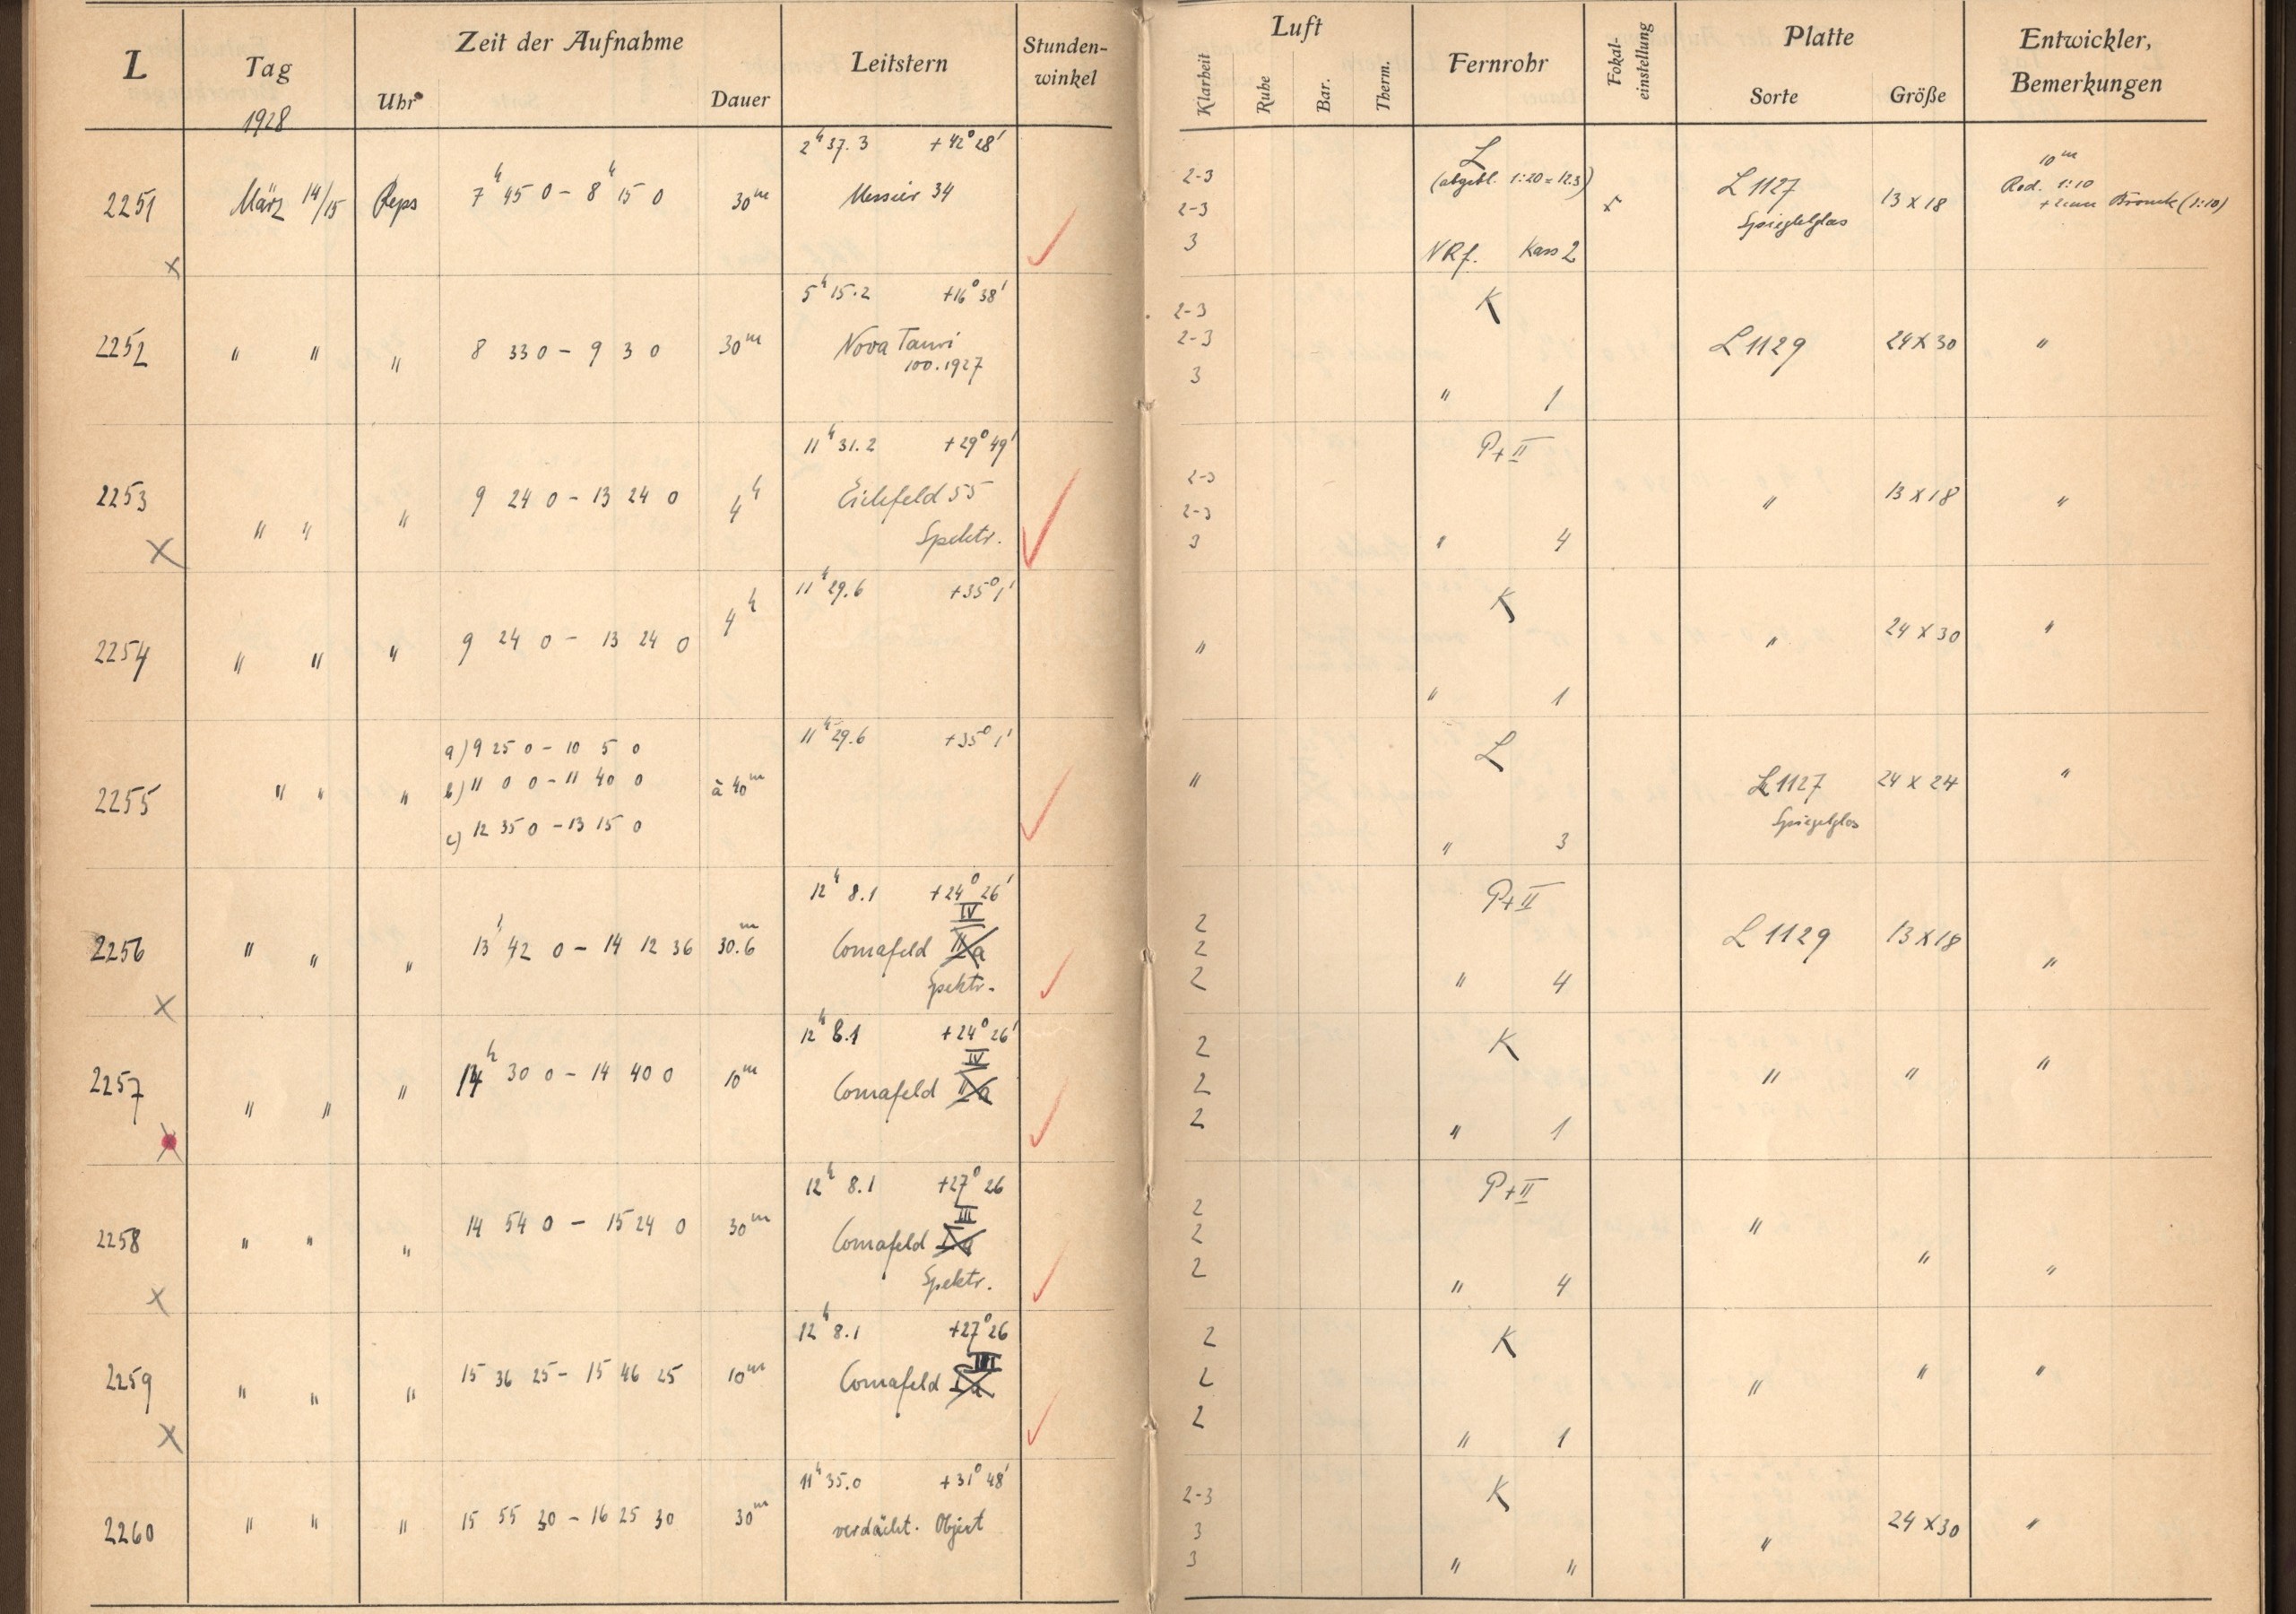 L Tag Zeit der Aufnahme Leitstern Stunden-winkel Luft Fernrohr Fokal-einstellung Platte Entwickler, Bemerkungen
Uhr Dauer Klarheit Ruhe Bar. Therm. Sorte Größe
1928
2h 37.3 +42° 28'
2251 März 14/15 Reps 7h 45 0 – 8h 15 0 30m Messier 34
2-3
2-3
3
L
(abgebl. 1:20 = 12.3)
NRf. Kass 2
L 1127
Spiegelglas
13 x 18
10m
Rod. 1:10
x
5h 15.2 +16° 38'
2252 " " " 8 33 0 – 9 3 0 30m Nova Tauri
100.1927
2-3
2-3
3
K
" 1
L 1129 24 x 30 "
11h 31.2 +29° 49'
2253 " " " 9 24 0 – 13 24 0 4h Eichfeld 55
Spektr.
x
2-3
2-3
3
P+II
" 4
" 13 x 18 "
11h 29.6 +35° 1'
2254 " " " 9 24 0 – 13 24 0 4h
"
K
" 1
" 24 x 30 "
11h 29.6 +35° 1'
a) 9 25 0 – 10 5 0
2255 " " " b) 11 0 0 – 11 40 0 à 40m
c) 12 35 0 – 13 15 0
"
L
" 3
L 1127
Spiegelglas
24 x 24 "
12h 8.1 +24° 26'
IV
2256 " " " 13 42 0 – 14 12 36 30.6m Comafeld IIa
Spektr.
x
2
2
2
P+II
" 4
L 1129 13 x 18 "
12h 8.1 +24° 26'
IV
2257 " " " 14h 30 0 – 14 40 0 10m Comafeld IIa
x
2
2
2
K
" 1
" " "
12h 8.1 +27° 26
III
2258 " " " 14 54 0 – 15 24 0 30m Comafeld Ia
Spektr.
x
2
2
2
P+II
" 4
" " "
12h 8.1 +27° 26
III
2259 " " " 15 36 25 – 15 46 25 10m Comafeld Ia
x
2
2
2
K
" 1
" " "
11h 35.0 +31° 48'
2260 " " " 15 55 30 – 16 25 30 30m verdächt. Objekt
2-3
3
3
K
" "
" 24 x 30 "